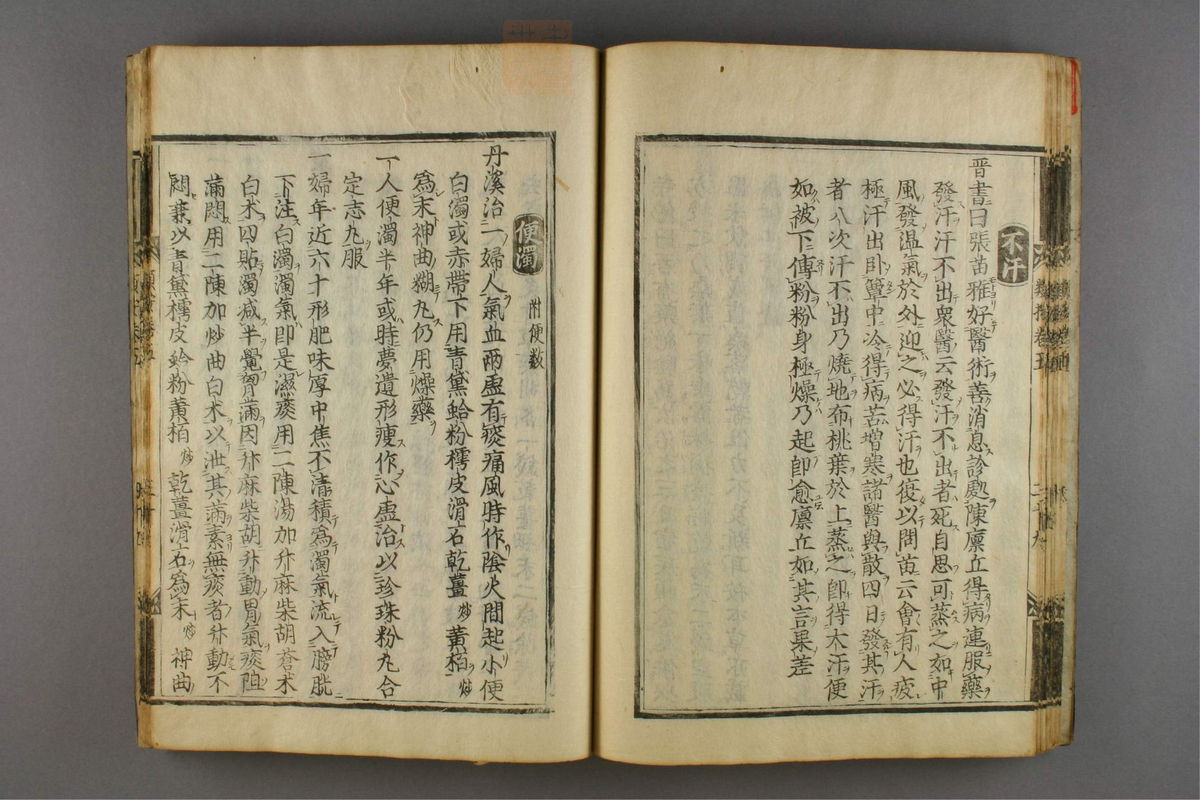 不汗
晋書曰張苗雅好醫術善消息診處陳廩丘得病連服藥
發汗汗不出衆醫云發汗不出者死自思可蒸之如中
風發温氣於外迎之必得汗也復以問苗云曾有人疲
極汗出卧簟中冷得病苦増寒諸醫與散四日發其汗
者八次汗不出乃燒地布桃葉於上蒸之即得大汗便
如被下傅粉粉身極燥乃起即愈廩丘如其言果差
便濁 附便數
丹溪治一婦人氣血兩虚有痰痛風時作陰火間起小便
白濁或赤帶下用青黛蛤粉樗皮滑石乾薑炒黄栢炒
爲末神曲糊丸仍用燥藥
一人便濁半年或時夢遺形瘦作心虚治以珍珠粉丸合
定志丸服
一婦年近六十形肥味厚中焦不清積爲濁氣流入膀胱
下注白濁濁氣即是濕痰用二陳湯加升麻柴胡蒼朮
白朮四貼濁减半覺胷滿因升麻柴胡升動胃氣痰阻
滿悶用二陳加炒曲白朮以泄其滿素無痰者升動不
悶兼以青黛樗皮蛤粉黄栢炒乾薑滑石爲末炒神曲